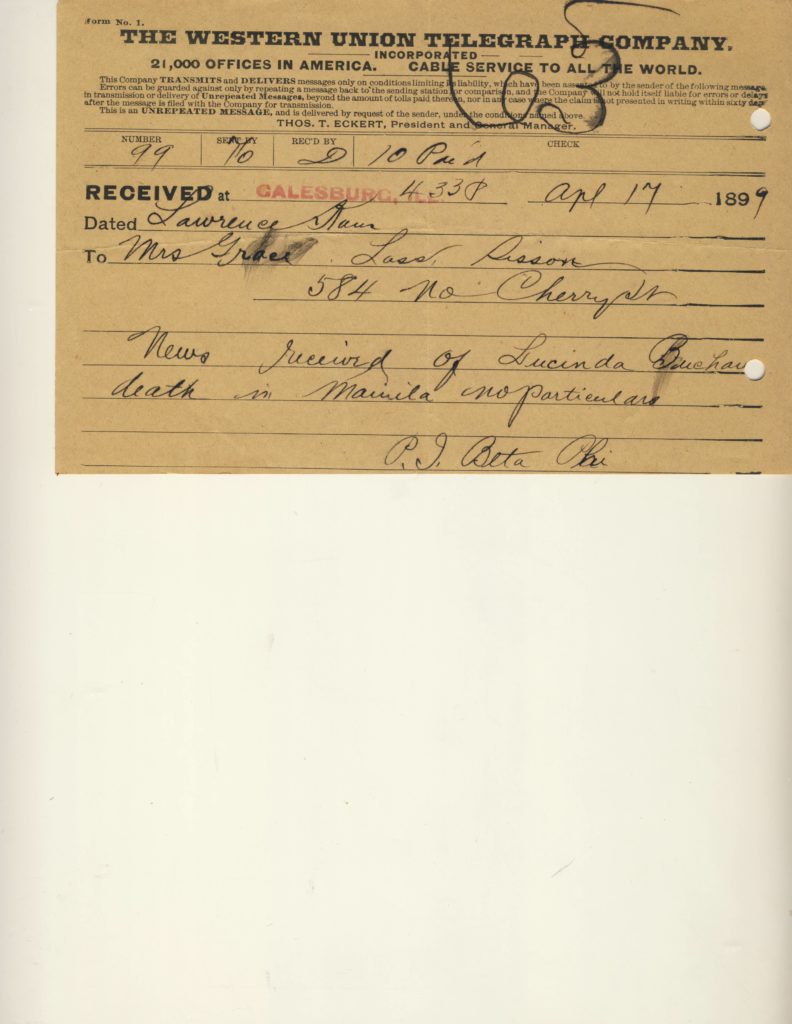 Form No. 1.
THE WESTERN UNION TELEGRAPH COMPANY.
INCORPORATED
21,000 OFFICES IN AMERICA. CABLE SERVICE TO ALL THE WORLD.
This Company TRANSMITS and DELIVERS messages only on conditions limiting its liability, which have been assented to by the sender of the following message.
Errors can be guarded against only by repeating a message back to the sending station for comparison, and the Company will not hold itself liable for errors or delays
in transmission or delivery of Unrepeated Messages, beyond the amount of tolls paid thereon, nor in any case where the claim is not presented in writing within sixty days
after the message is filed with the Company for transmission.
This is an UNREPEATED MESSAGE, and is delivered by request of the sender, under the conditions named above.
THOS. T. ECKERT, President and General Manager.
NUMBER SENT BY REC'D BY CHECK
99 D 10 Paid
RECEIVED at GALESBURG, ILL 433P Apl 17 1899
Dated Lawrence Kan
To Mrs Grace Lass Sisson
584 No Cherry St
News received of Lucinda Buchan
death in Mainila no particulars
P. I. Beta Phi